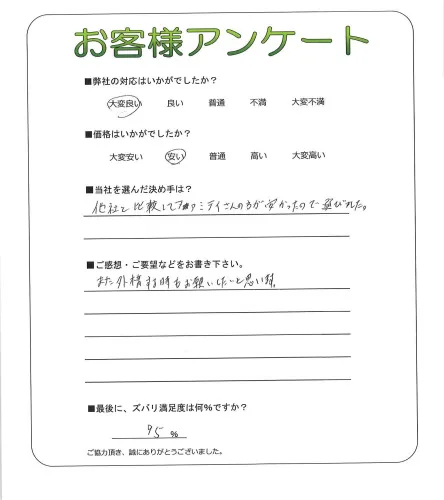 お客様アンケート
■弊社の対応はいかがでしたか？
大変良い 良い 普通 不満 大変不満
■価格はいかがでしたか？
大変安い 安い 普通 高い 大変高い
■当社を選んだ決め手は？
他社と比較して ァミテイさんの方が安かったので選びました。
■ご感想・ご要望などをお書き下さい。
また外構する時もお願いしたいと思います。
■最後に、ズバリ満足度は何%ですか？
95 %
ご協力頂き、誠にありがとうございました。